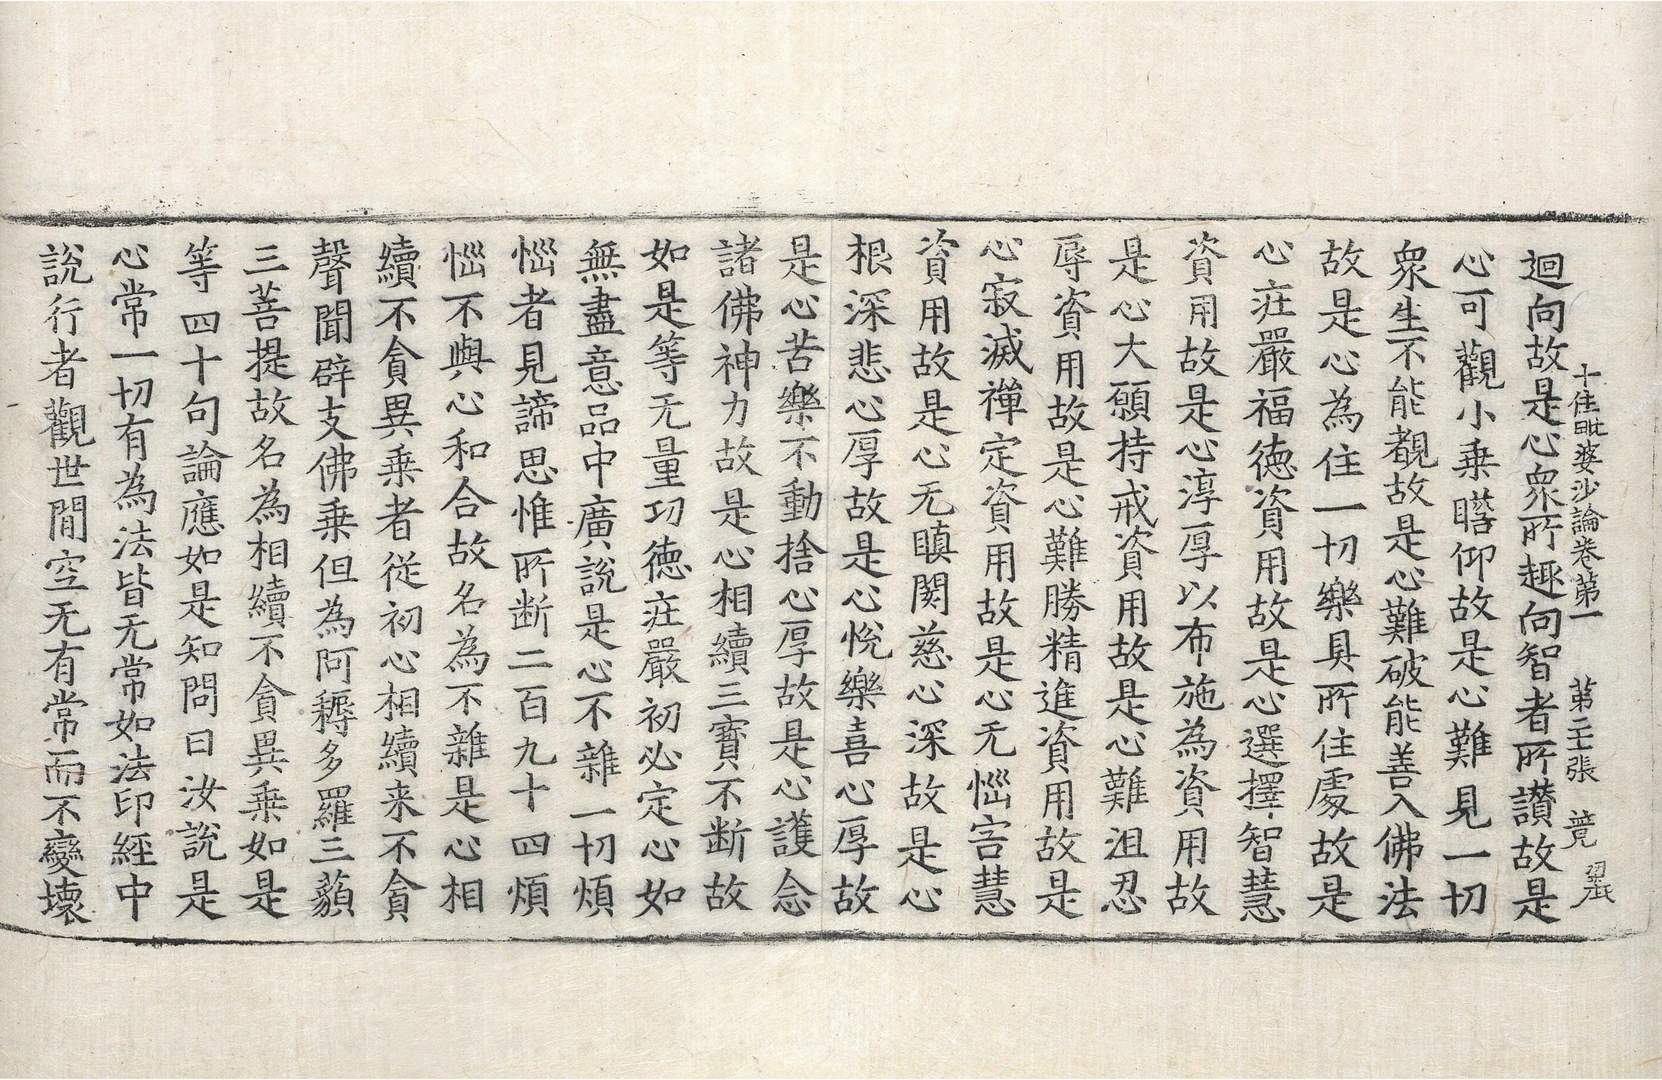 十住毗婆沙論卷第一 第二十張 竟
迴向故是心衆所趣向智者所讚故是
心可觀小乗瞻仰故是心難見一切
衆生不能覩故是心難破能善入佛法
故是心為住一切樂具所住處故是
心莊嚴福德資用故是心選擇智慧
資用故是心淳厚以布施為資用故
是心大願持戒資用故是心難沮忍
辱資用故是心難勝精進資用故是
心寂滅禪定資用故是心无惱害慧
資用故是心无瞋閡慈心深故是心
根深悲心厚故是心悅樂喜心厚故
是心苦樂不動捨心厚故是心護念
諸佛神力故是心相續三寶不断故
如是等无量功德莊嚴初必定心如
無盡意品中廣說是心不雜一切煩
惱者見諦思惟所断二百九十四煩
惱不與心和合故名為不雜是心相
續不貪異乗者從初心相續来不貪
聲聞辟支佛乗但為阿耨多羅三藐
三菩提故名為相續不貪異乗如是
等四十句論應如是知問曰汝說是
心常一切有為法皆无常如法印經中
說行者觀世間空无有常而不變壞